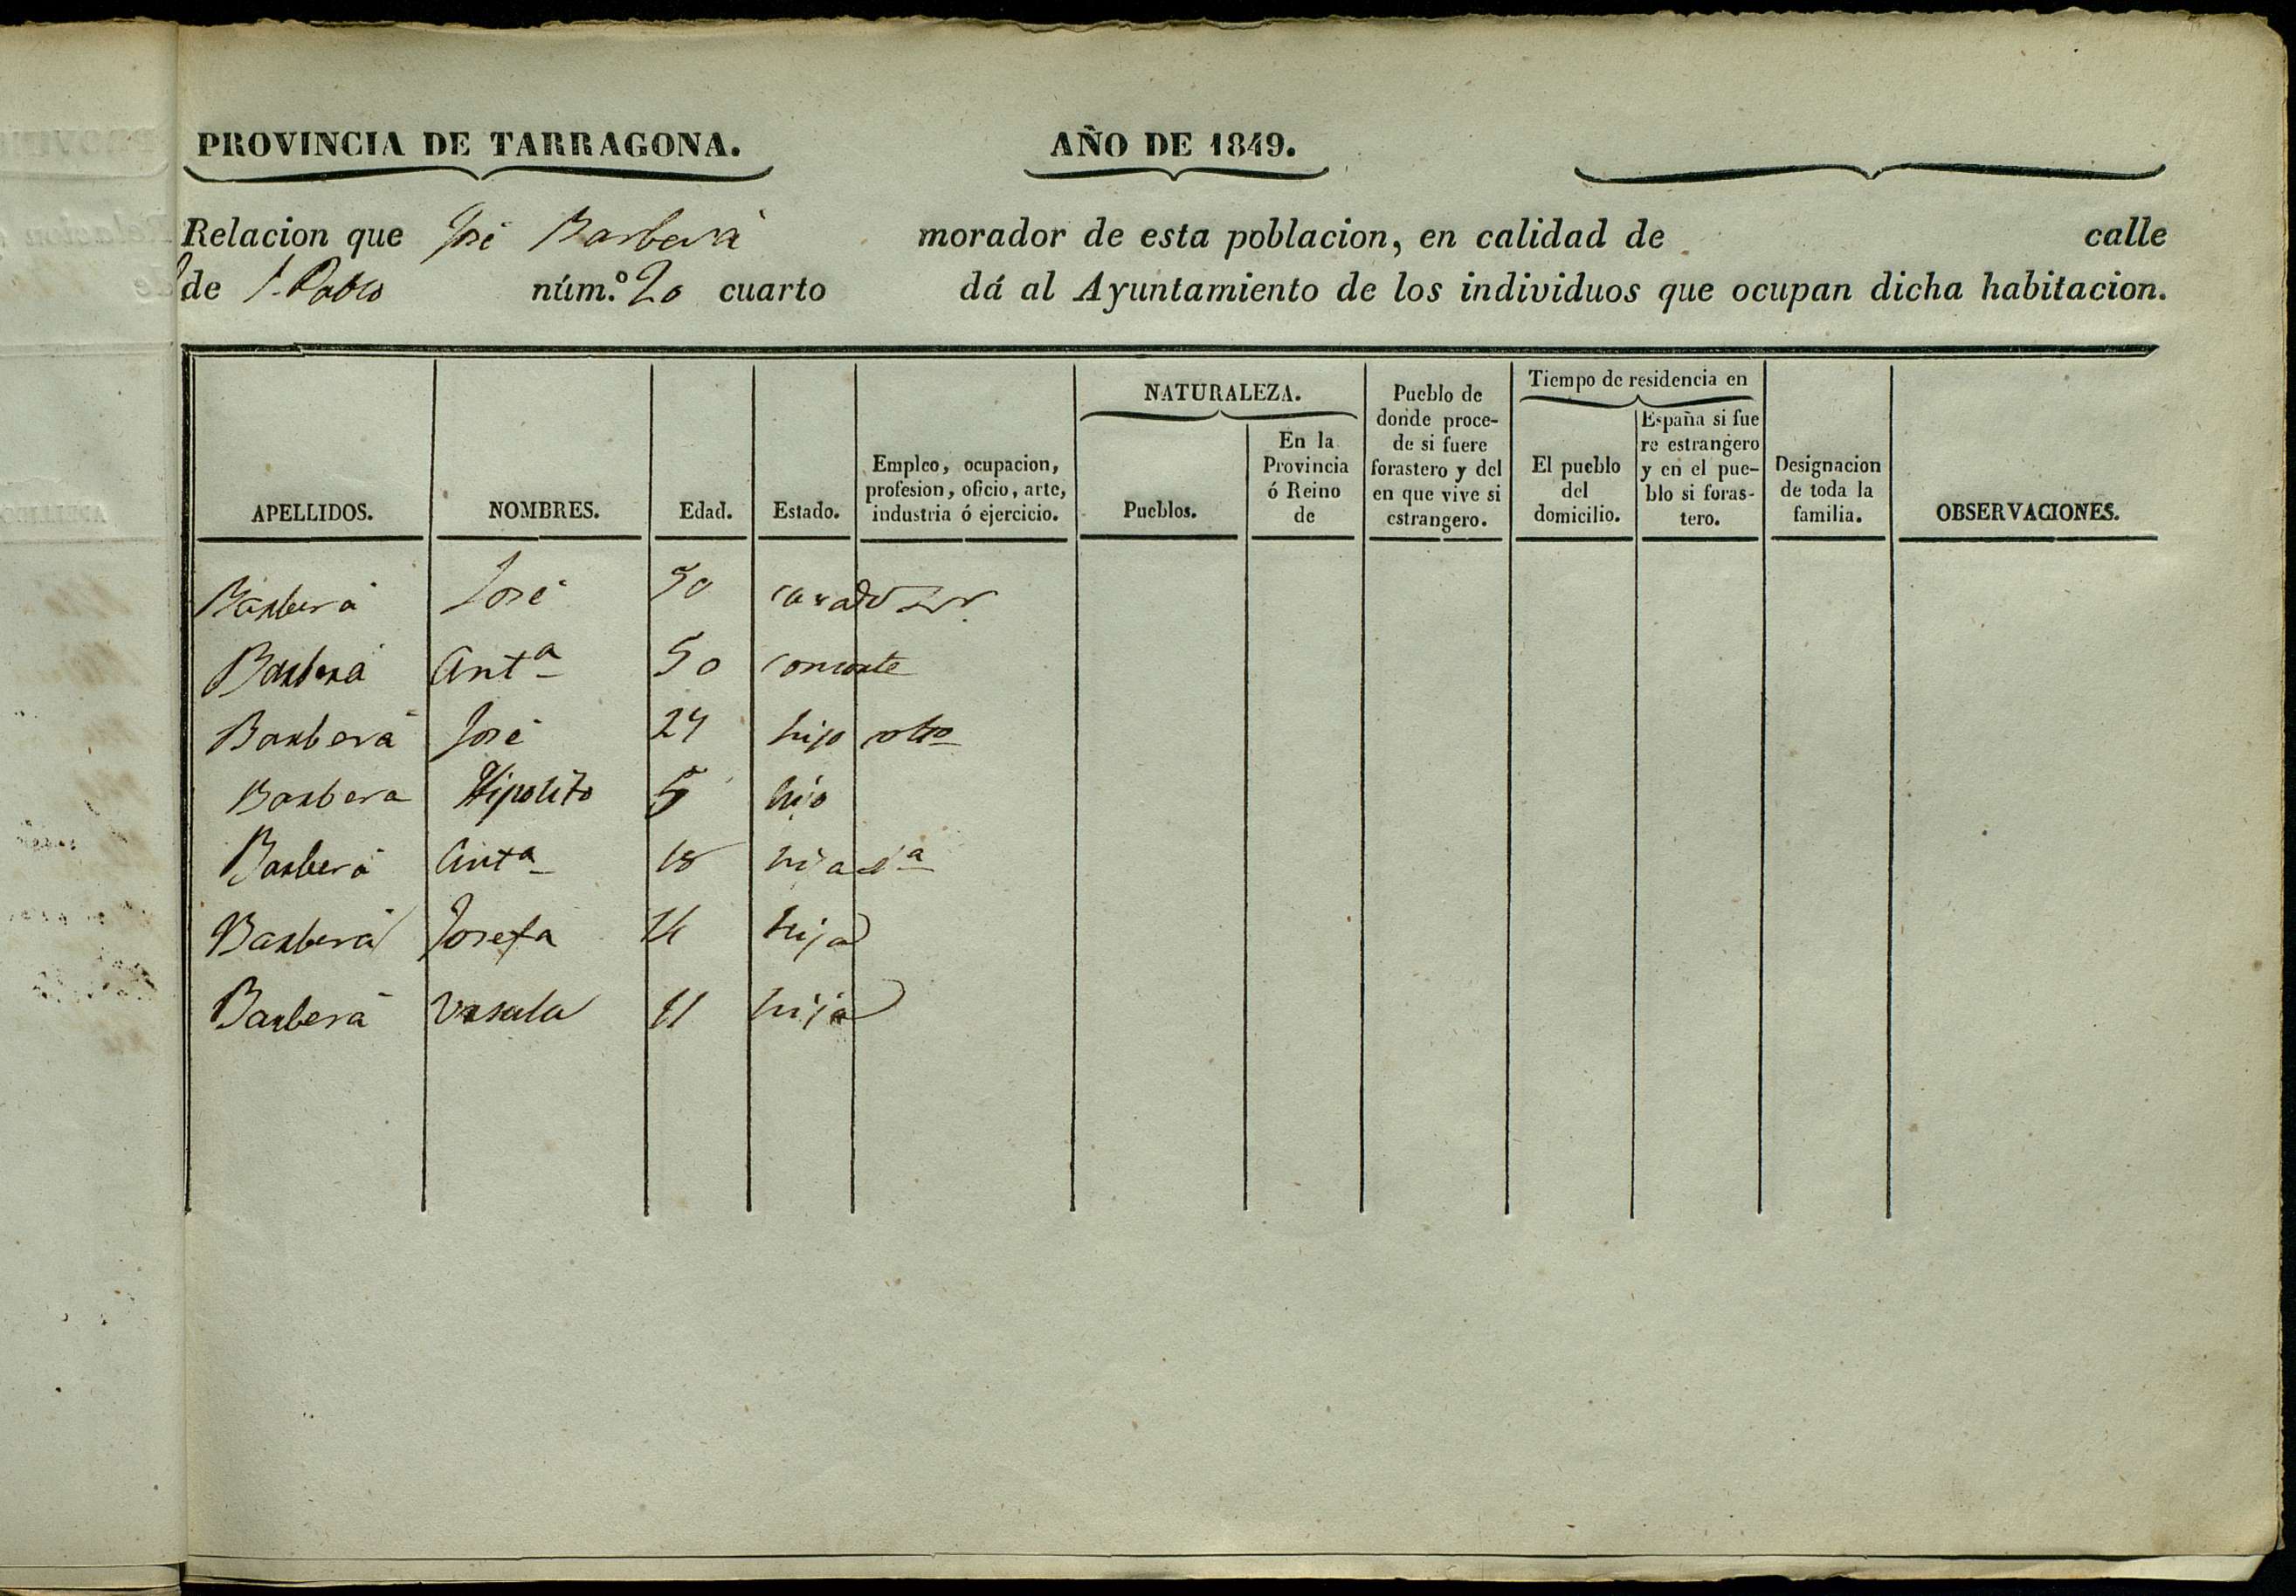 PROVINCIA DE TARRAGONA. AÑO DE 1849.
Relacion que José Barberá morador de esta poblacion, en calidad de calle
de S. Pablo núm.º 20 cuarto dá al Ayuntamiento de los individuos que ocupan dicha habitacion.
APELLIDOS.
NOMBRES.
Edad.
Estado.
Empleo, ocupacion,
profesion, oficio, arte,
industria ó ejercicio.
NATURALEZA.
Pueblos.
En la
Provincia
ó Reino
de
Pueblo de
donde proce-
de si fuere
forastero y del
en que vive si
estrangero.
Tiempo de residencia en
El pueblo
del
domicilio.
España si fue
re estrangero
y en el pue-
blo si foras-
tero.
Designacion
de toda la
familia.
OBSERVACIONES.
Barberá José 50 casado
Barberá Antª 50 consorte
Barberá José 24 hijo
Barbera Hipolito 5 hijo
Barberá Antª 18 hija
Barberá Josefa hija
Barberá Ursula 11 hija